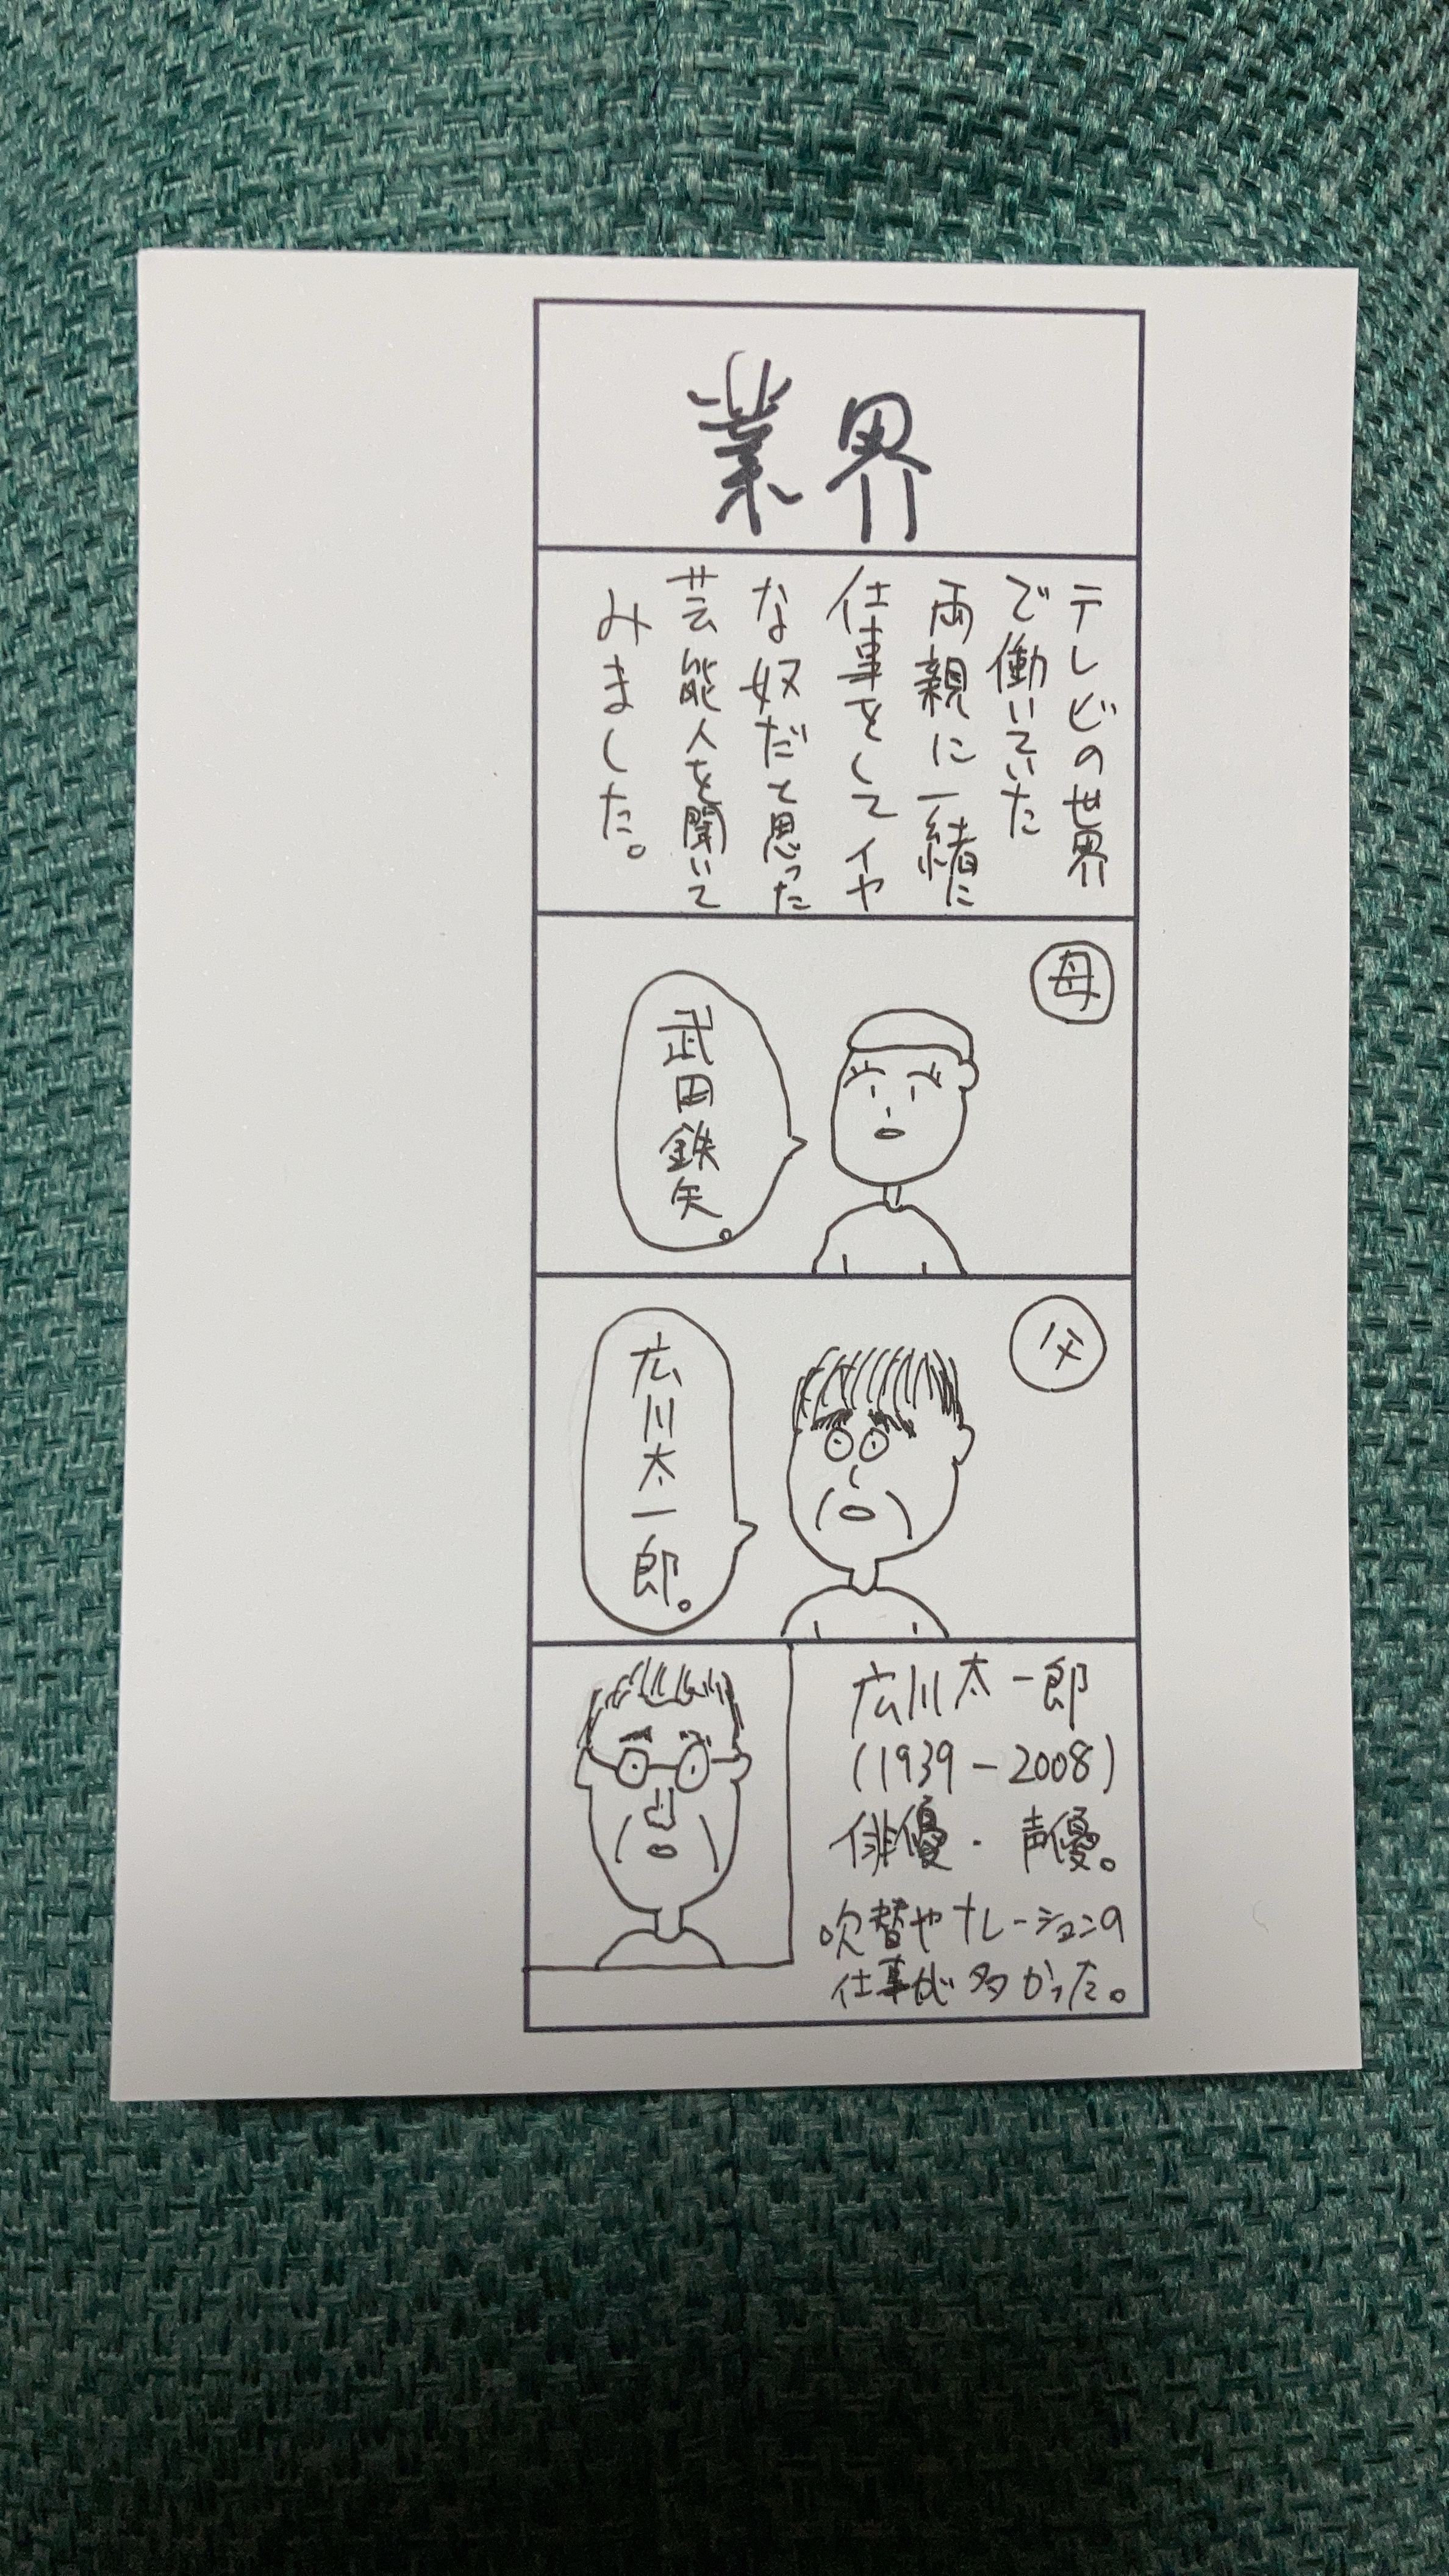 業界
テレビの世界
で働いていた
両親に一緒に
仕事をしてイヤ
な奴だと思った
芸能人を聞いて
みました。
母
武田鉄矢。
父
広川太一郎。
広川太一郎
(1939-2008)
俳優・声優。
吹替やナレーションの
仕事が多かった。